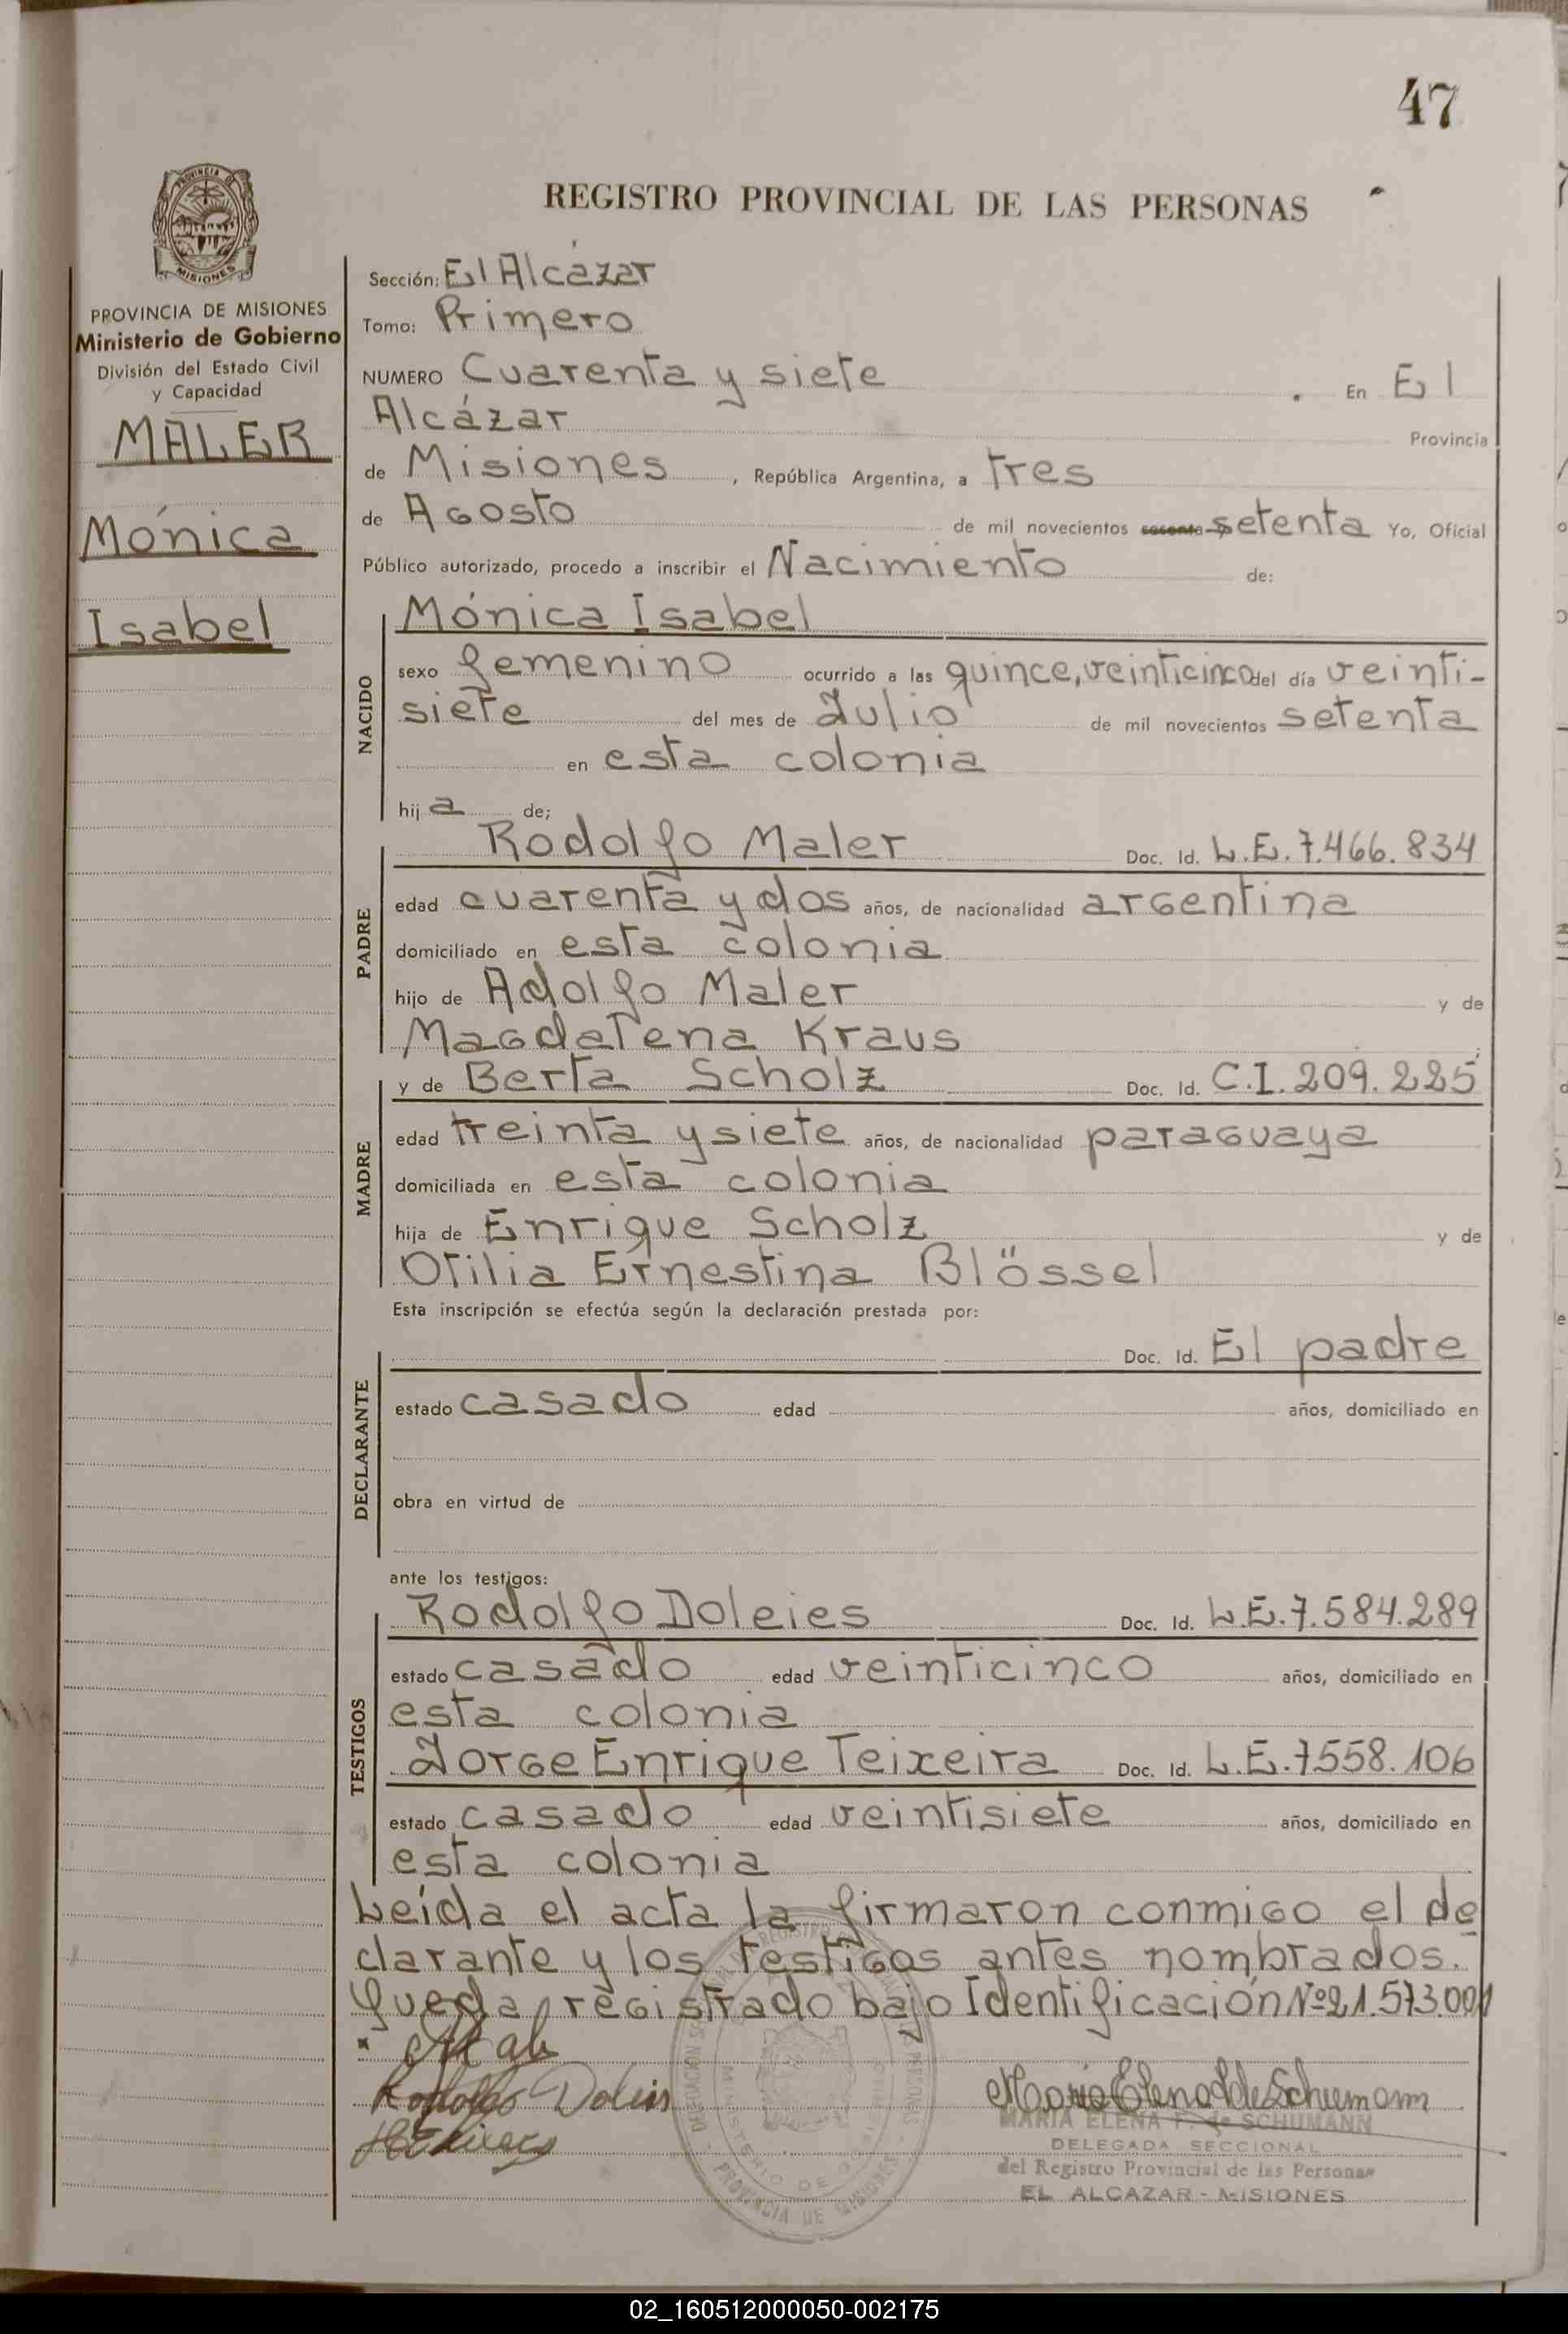 47
REGISTRO PROVINCIAL DE LAS PERSONAS
PROVINCIA DE MISIONES
Ministerio de Gobierno
División del Estado Civil
y Capacidad
MALER
Mónica
Isabel
Sección: El Alcázar
Tomo: Primero
NUMERO Cuarenta y siete . En El
Alcázar Provincia
de Misiones , República Argentina, a tres
de Agosto de mil novecientos sesenta y setenta Yo, Oficial
Público autorizado, procedo a inscribir el Nacimiento de:
NACIDO
Mónica Isabel
sexo femenino ocurrido a las quince, veinticinco del día veinti-
siete del mes de Julio de mil novecientos setenta
en esta colonia
hija de;
PADRE
Rodolfo Maler Doc. Id. L.E. 7.466.834
edad cuarenta y dos años, de nacionalidad argentina
domiciliado en esta colonia
hijo de Adolfo Maler y de
Magdalena Kraus
MADRE
y de Berta Scholz Doc. Id. C.I. 209.225
edad treinta y siete años, de nacionalidad paraguaya
domiciliada en esta colonia
hija de Enrique Scholz y de
Otilia Ernestina Blössel
Esta inscripción se efectúa según la declaración prestada por:
DECLARANTE
Doc. Id. El padre
estado casado edad años, domiciliado en
obra en virtud de
ante los testigos:
TESTIGOS
Rodolfo Doleies Doc. Id. L.E. 7.584.289
estado casado edad veinticinco años, domiciliado en
esta colonia
Jorge Enrique Teixeira Doc. Id. L.E. 7558.106
estado casado edad veintisiete años, domiciliado en
esta colonia
Leída el acta la firmaron conmigo el de
clarante y los testigos antes nombrados.
Queda registrado bajo Identificación Nº 21.573.001
MARIA ELENA F. de SCHUMANN
DELEGADA SECCIONAL
del Registro Provincial de las Personas
EL ALCAZAR - MISIONES
PROVINCIA DE MISIONES
02_160512000050-002175